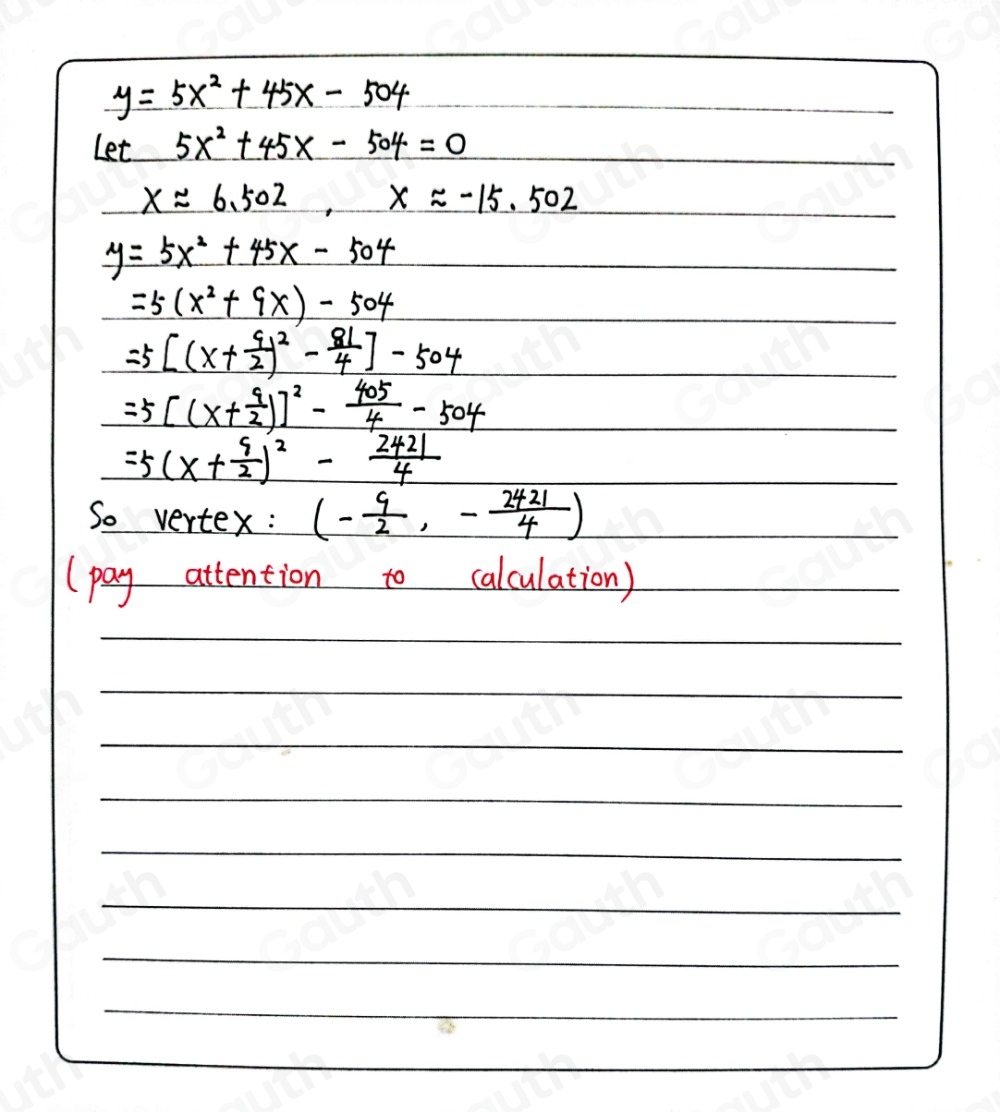 y = 5x² + 45x - 504
Let 5x² + 45x - 504 = 0
x ≈ 6.502 , x ≈ -15.502
y = 5x² + 45x - 504
=5(x² + 9x) - 504
=5[(x+9/2)² - 81/4] - 504
=5[(x+9/2)]² - 405/4 - 504
=5(x+9/2)² - 2421/4
So vertex: (-9/2, -2421/4)
(pay attention to calculation)